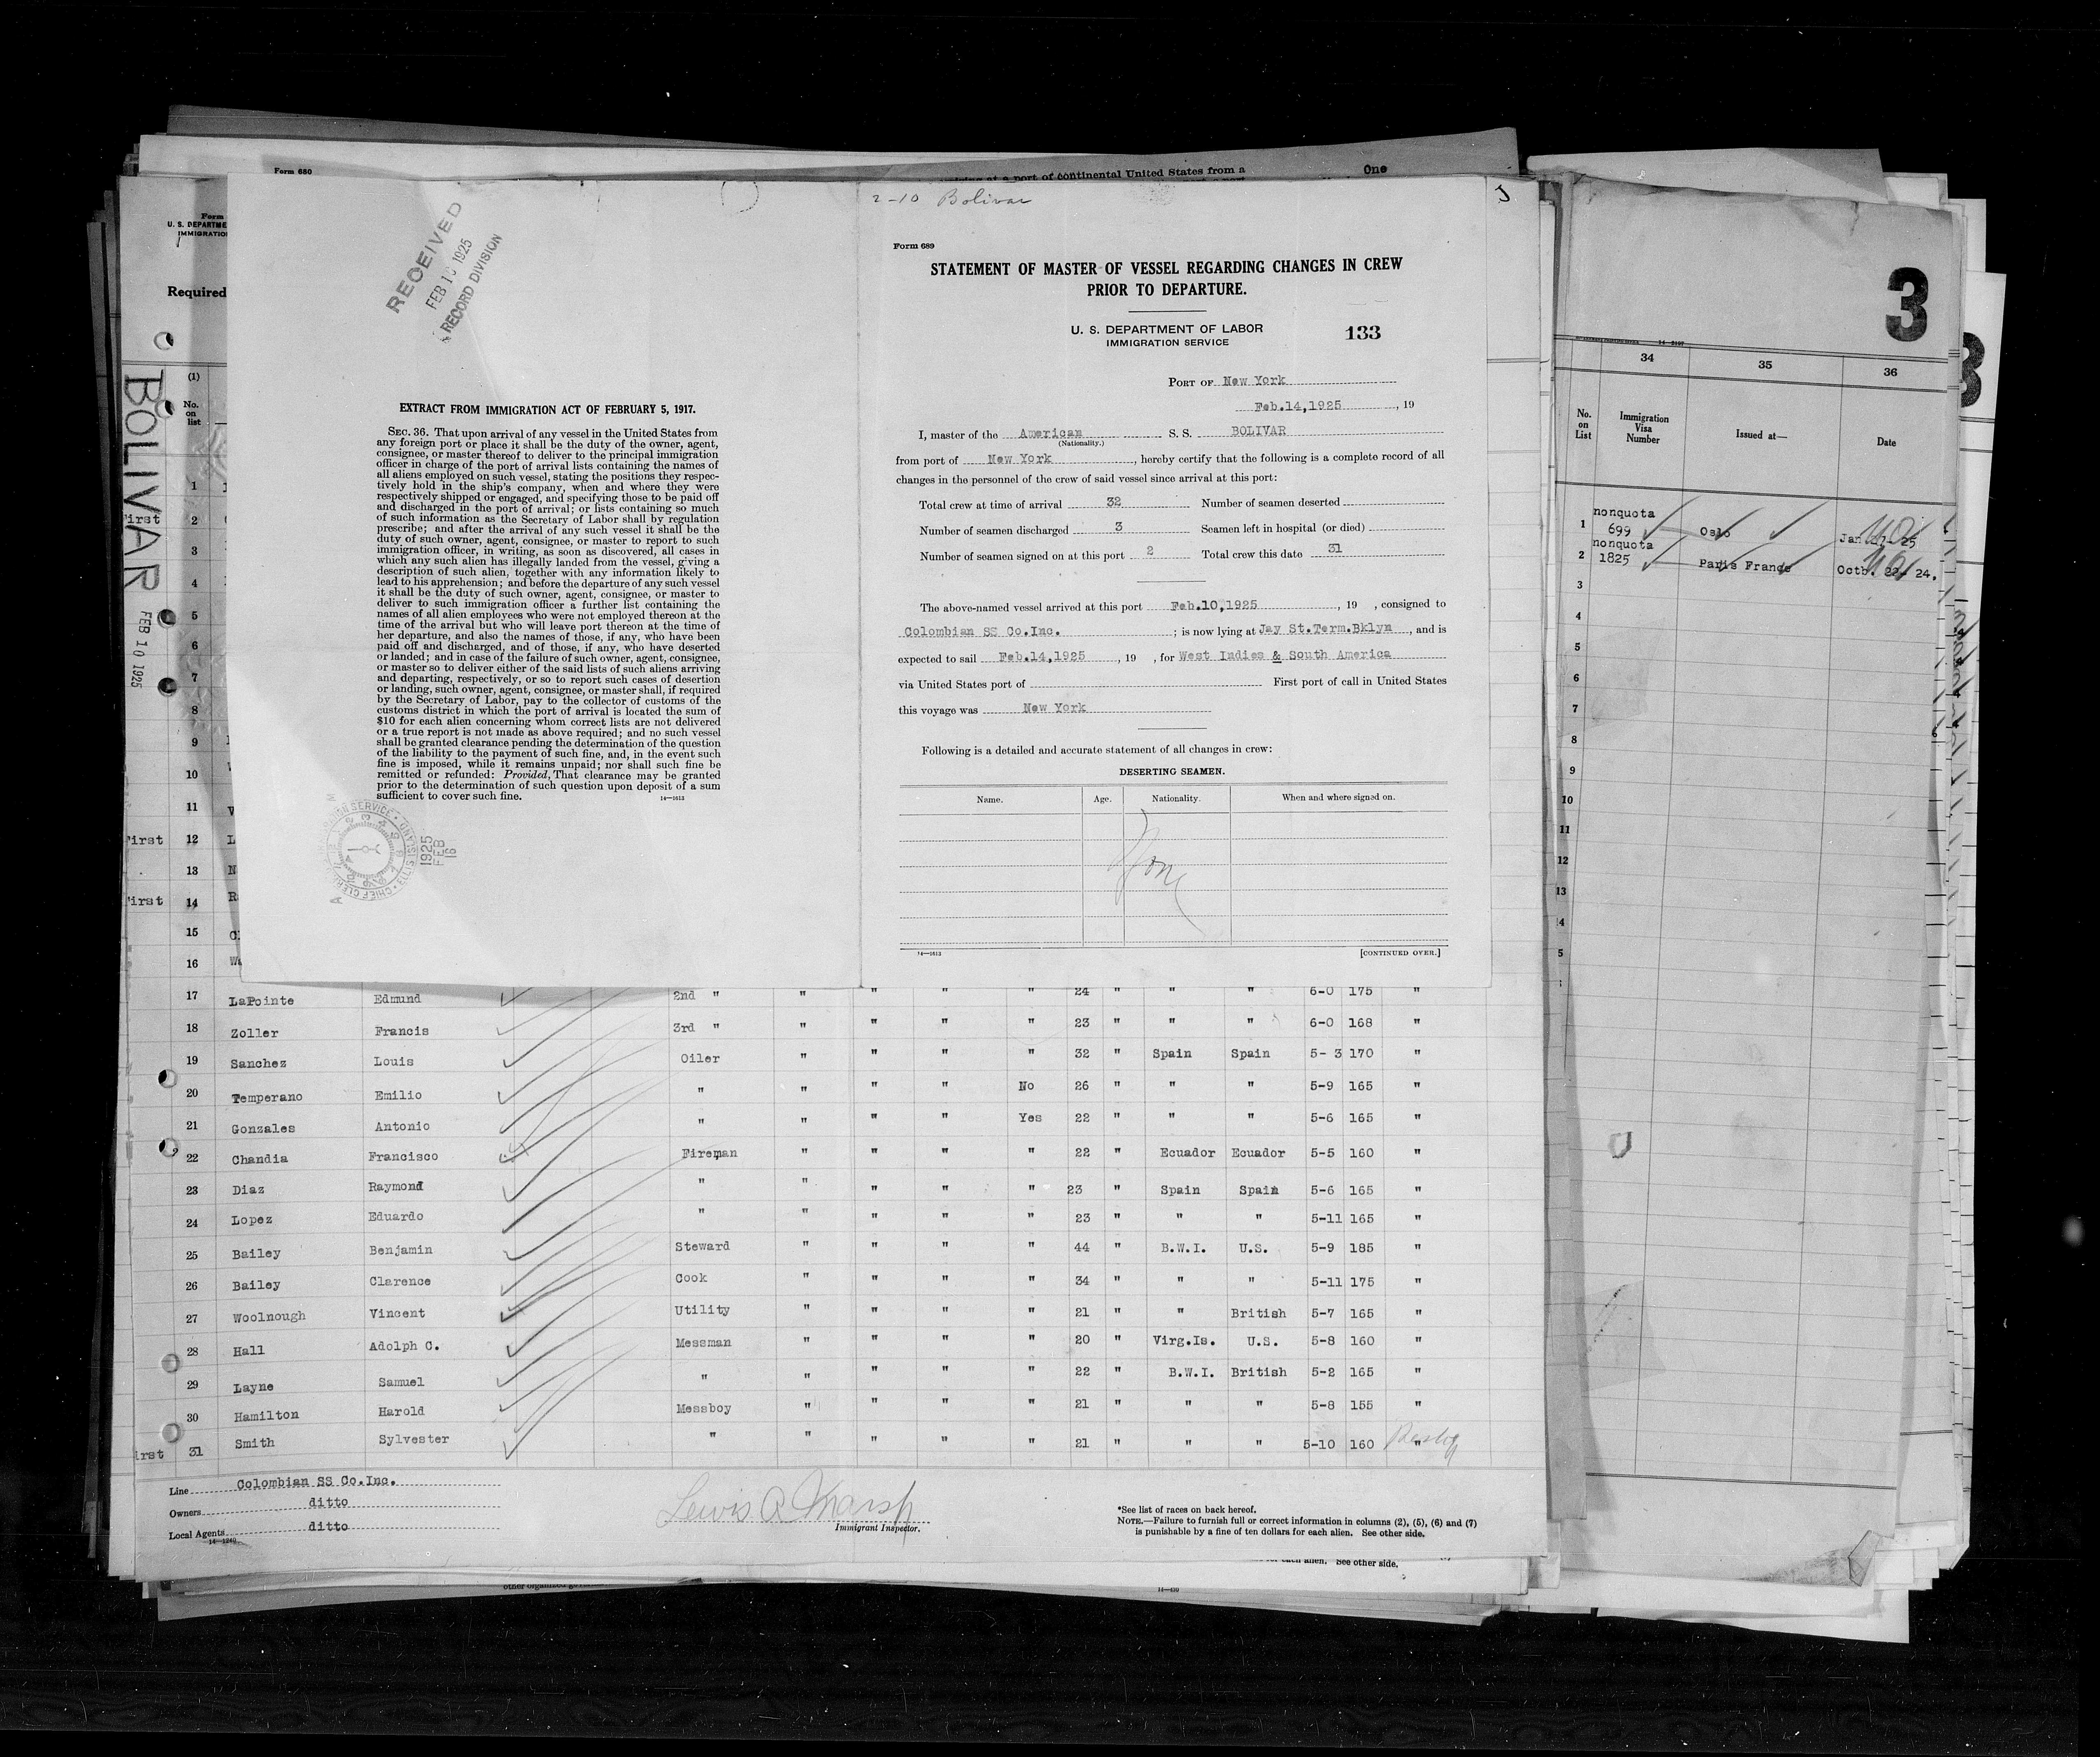 Form 680
One
rriving at a port of continental United States from a
Form
U. S. DEPARTME
IMMIGRATIO
Required
BOLIVAR
FEB 10 1925
(1)
No.
on
list
1
First 2
3
4
5
6
7
8
9
10
11 V
First 12 L
13 N
First 14 R
15 C
16 We
RECEIVED
FEB 10 1925
RECORD DIVISION
EXTRACT FROM IMMIGRATION ACT OF FEBRUARY 5, 1917.
SEC. 36. That upon arrival of any vessel in the United States from
any foreign port or place it shall be the duty of the owner, agent,
consignee, or master thereof to deliver to the principal immigration
officer in charge of the port of arrival lists containing the names of
all aliens employed on such vessel, stating the positions they respec-
tively hold in the ship's company, when and where they were
respectively shipped or engaged, and specifying those to be paid off
and discharged in the port of arrival; or lists containing so much
of such information as the Secretary of Labor shall by regulation
prescribe; and after the arrival of any such vessel it shall be the
duty of such owner, agent, consignee, or master to report to such
immigration officer, in writing, as soon as discovered, all cases in
which any such alien has illegally landed from the vessel, giving a
description of such alien, together with any information likely to
lead to his apprehension; and before the departure of any such vessel
it shall be the duty of such owner, agent, consignee, or master to
deliver to such immigration officer a further list containing the
names of all alien employees who were not employed thereon at the
time of the arrival but who will leave port thereon at the time of
her departure, and also the names of those, if any, who have been
paid off and discharged, and of those, if any, who have deserted
or landed; and in case of the failure of such owner, agent, consignee,
or master so to deliver either of the said lists of such aliens arriving
and departing, respectively, or so to report such cases of desertion
or landing, such owner, agent, consignee, or master shall, if required
by the Secretary of Labor, pay to the collector of customs of the
customs district in which the port of arrival is located the sum of
$10 for each alien concerning whom correct lists are not delivered
or a true report is not made as above required; and no such vessel
shall be granted clearance pending the determination of the question
of the liability to the payment of such fine, and, in the event such
fine is imposed, while it remains unpaid; nor shall such fine be
remitted or refunded: Provided, That clearance may be granted
prior to the determination of such question upon deposit of a sum
sufficient to cover such fine.
14—1613
1925
FEB
16
2-10 Bolivar
Form 689
STATEMENT OF MASTER OF VESSEL REGARDING CHANGES IN CREW
PRIOR TO DEPARTURE.
U. S. DEPARTMENT OF LABOR
IMMIGRATION SERVICE
133
PORT OF New York
Feb.14,1925, 19
I, master of the American S. S. BOLIVAR
(Nationality.)
from port of New York, hereby certify that the following is a complete record of all
changes in the personnel of the crew of said vessel since arrival at this port:
Total crew at time of arrival 32 Number of seamen deserted
Number of seamen discharged 3 Seamen left in hospital (or died)
Number of seamen signed on at this port 2 Total crew this date 31
The above-named vessel arrived at this port Feb.10,1925, 19 , consigned to
Colombian SS Co.Inc. ; is now lying at Jay St.Term.Bklyn, and is
expected to sail Feb.14,1925, 19 , for West Indies & South America
via United States port of First port of call in United States
this voyage was New York
Following is a detailed and accurate statement of all changes in crew:
DESERTING SEAMEN.
Name. Age. Nationality. When and where signed on.
None
14—1613 [CONTINUED OVER.]
17 LaPointe Edmund 2nd " " " " " 24 " " " 6-0 175 "
18 Zoller Francis 3rd " " " " " 23 " " " 6-0 168 "
19 Sanchez Louis Oiler " " " " 32 " Spain Spain 5- 3 170 "
20 Temperano Emilio " " " " No 26 " " " 5-9 165 "
21 Gonzales Antonio " " " " Yes 22 " " " 5-6 165 "
22 Chandia Francisco Fireman " " " " 22 " Ecuador Ecuador 5-5 160 "
23 Diaz Raymond " " " " " 23 " Spain Spain 5-6 165 "
24 Lopez Eduardo " " " " " 23 " " " 5-11 165 "
25 Bailey Benjamin Steward " " " " 44 " B.W.I. U.S. 5-9 185 "
26 Bailey Clarence Cook " " " " 34 " " " 5-11 175 "
27 Woolnough Vincent Utility " " " " 21 " " British 5-7 165 "
28 Hall Adolph C. Messman " " " " 20 " Virg.Is. U.S. 5-8 160 "
29 Layne Samuel " " " " " 22 " B.W.I. British 5-2 165 "
30 Hamilton Harold Messboy " " " " 21 " " " 5-8 155 "
irst 31 Smith Sylvester " " " " " 21 " " " 5-10 160 "
Line Colombian SS Co.Inc.
Owners ditto
Local Agents ditto
14—1240
Lewis A Marsh
Immigrant Inspector.
*See list of races on back hereof.
NOTE.—Failure to furnish full or correct information in columns (2), (5), (6) and (7)
is punishable by a fine of ten dollars for each alien. See other side.
each alien. See other side.
3
34 35 36
No.
on
List
Immigration
Visa
Number
Issued at—
Date
1 nonquota 699 Oslo Jan 27- 25
2 nonquota 1825 Paris France Octb. 22- 24.
3
4
5
6
7
8
9
10
11
12
13
14
5